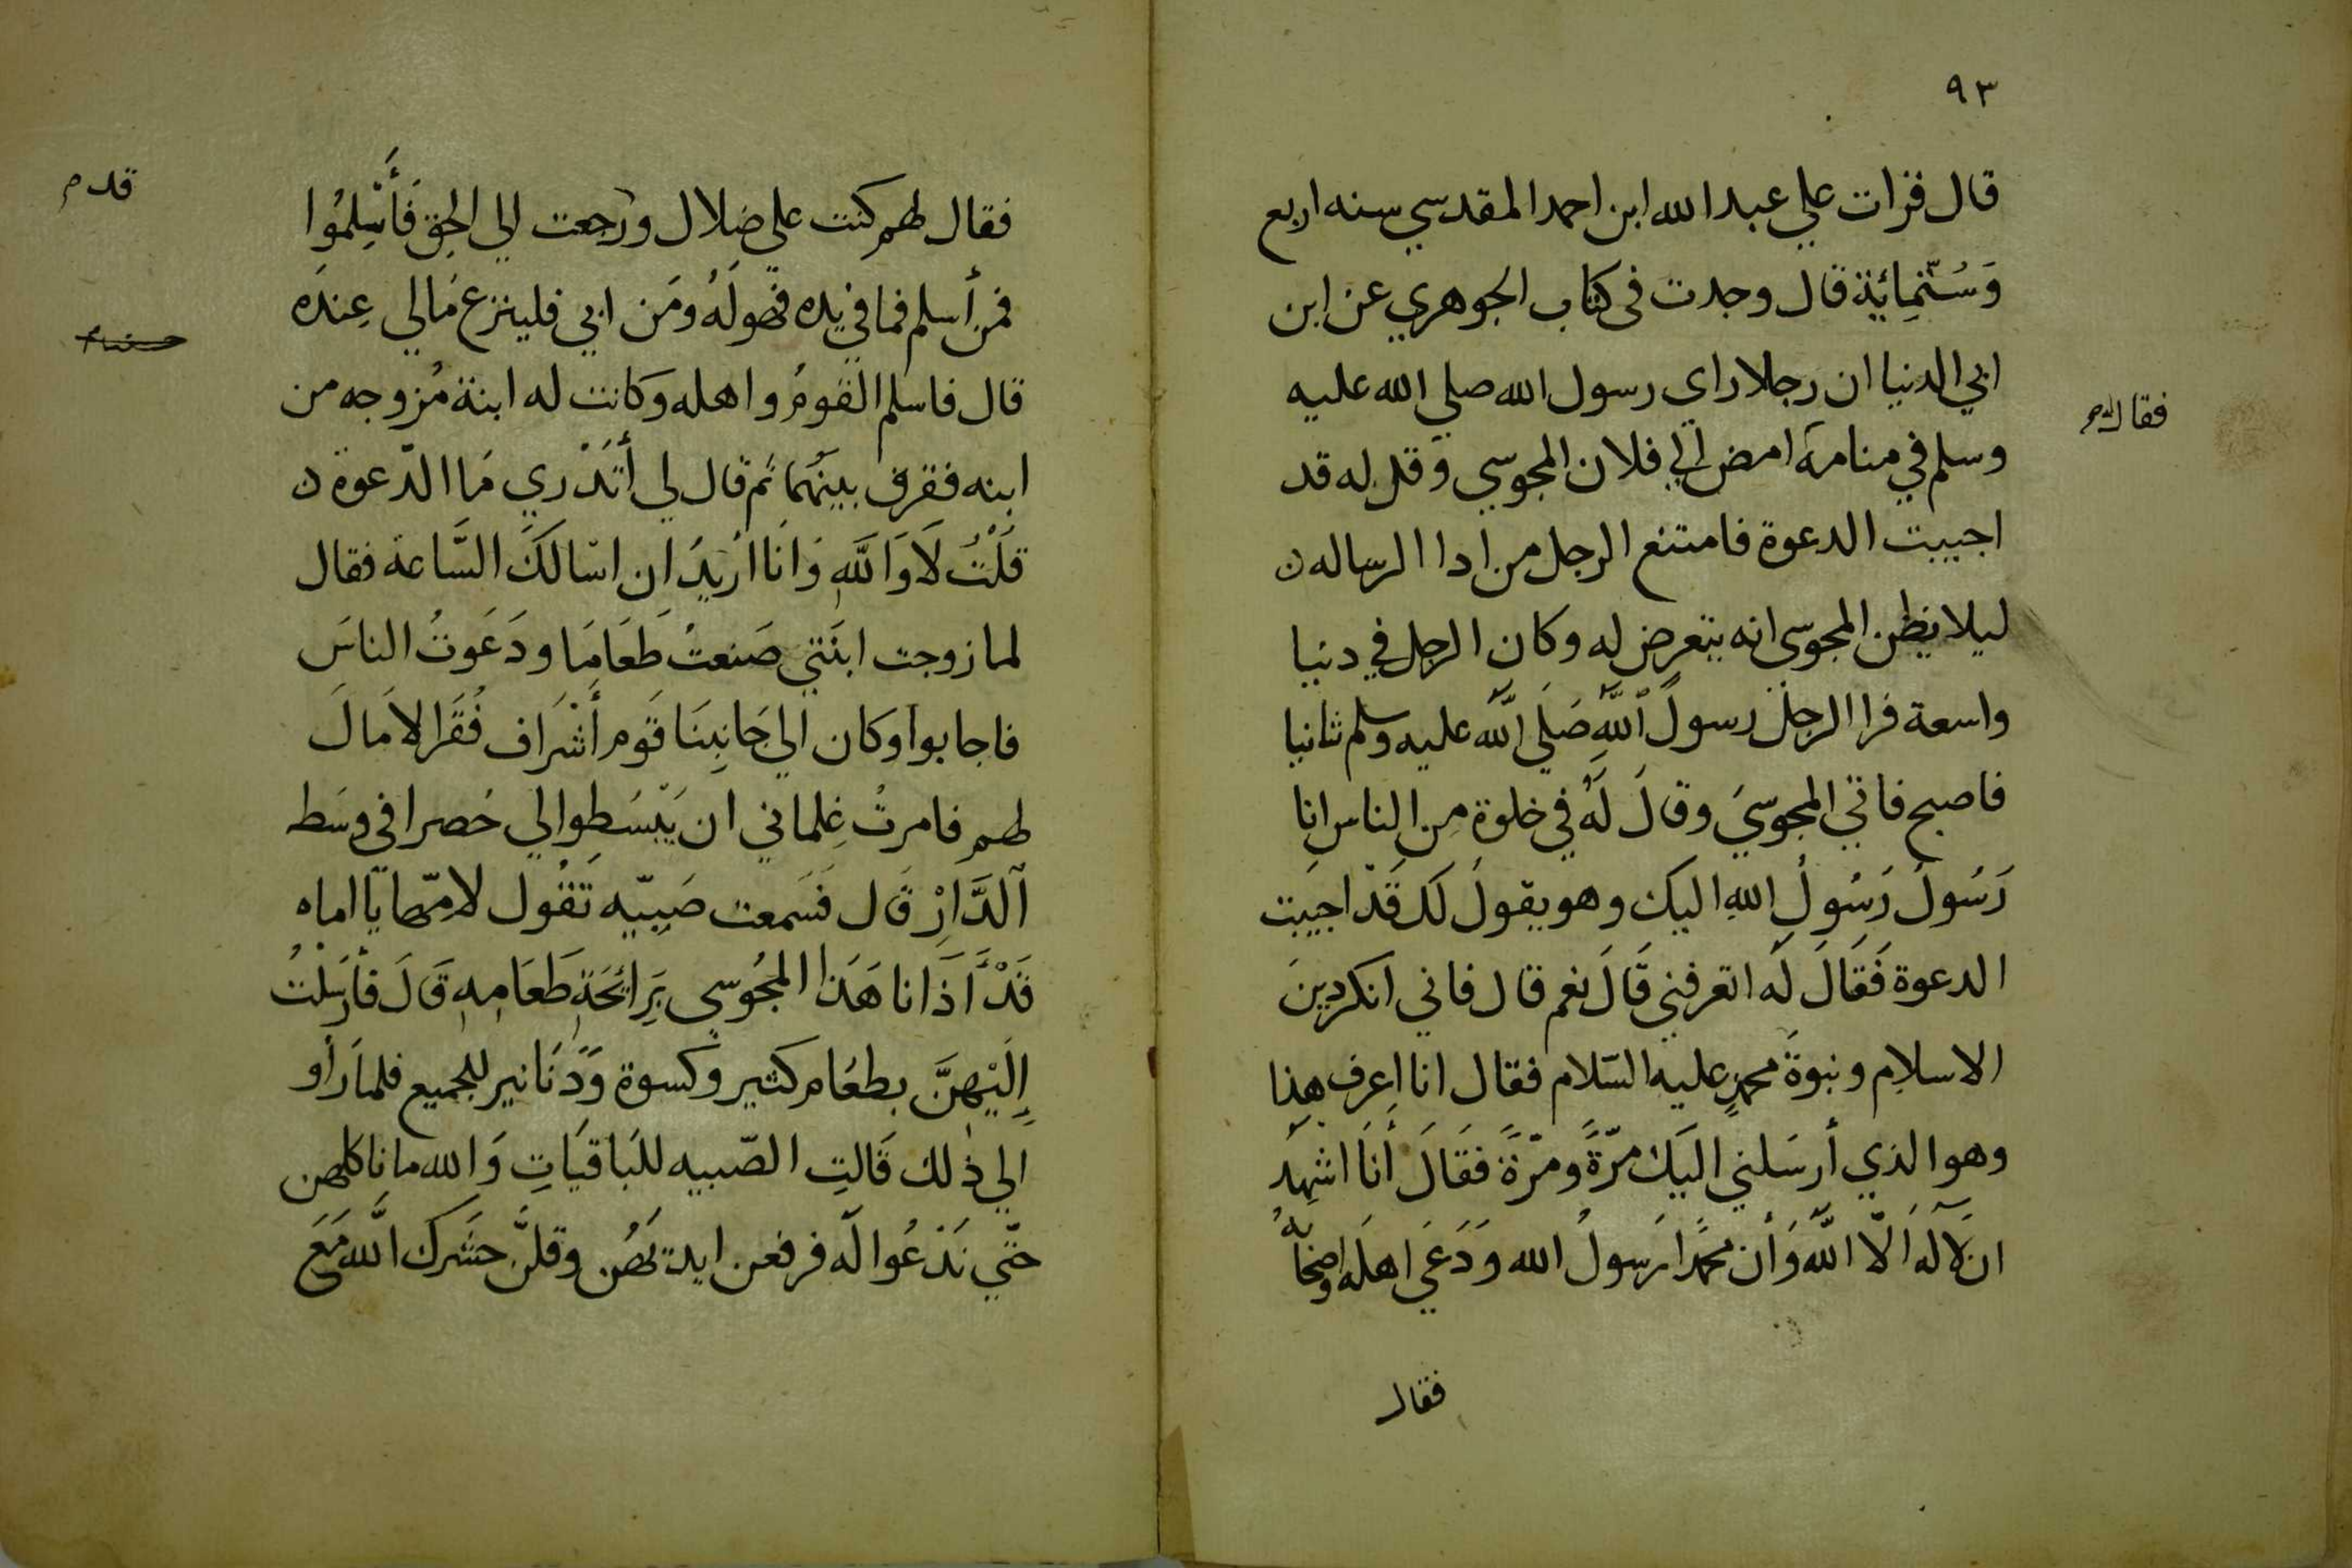 ٩٣
قال قرات علي عبد الله ابن احمد المقدسي سنه اربع
وَسُتّمِائِة قال وجدت فى كتاب الجوهري عن ابن
ابي الدنيا ان رجلا راى رسول الله صلي الله عليه
وسلم في منامه امض الي فلان المجوسي وقل له قد
فقال له
اجيبت الدعوة فامتنع الرجل من ادا الرساله ن
ليلا يظن المجوسي انه يتعرض له وكان الرجل في دنيا
واسعة فرا الرجل رسولَ اللَّهِ صَلَي اللَّه عليه وسلم ثانيا
فاصبح فاتي المجوسيَ وقالَ لَهُ في خلوة مِن الناس انا
رَسُولُ رَسُولِ اللهِ اليك وهو يقولُ لَك قَدْ اجيبَت
الدعوة فَقَالَ لَه اتعرفني قَالَ نعم قال فاني انكر دينَ
الاسلام ونبوةَ محمدٍ عليه السّلام فقال انا اعرف هذا
وهو الذي أرسَلني اليَك مرّةً ومرّةً فقَالَ أنَا اشهدُ
ان لَا اله الّا اللّه وَأن محمَّدا رَسولُ الله وَدَعَي اهله واصحَابهُ
فقال
فقال لهم كنت علي ضلال ورجعت الي الحق فَأَسْلِمُوا
فمن أسلم فما في يده فهو لَهُ ومَن ابي فلينزع مَالي عِندَه
قدم
قال فاسلم القومُ واهله وَكانت له ابنة مُزوجه من
ابنه ففرق بينَهُما ثم قال لي أَتَدْري مَا الدّعوة ن
قُلْتُ لَا وَاللَّهِ وَانَا اُرِيدُ ان اسَالَكَ السَّاعة فقال
لما زوجت ابنَتي صَنعتُ طَعَامَا ودَعَوتُ الناسَ
فاجابوا وكان الي جَانِبنَا قَوم أَشْرَاف فُقَرا لا مَالَ
لهم فامرتُ غِلماني ان يَبْسَطِوا لي حُصرا في وسَط
الدَّارِ قَال فَسَمعت صَبِيّيه تَقُول لامّها يَا اماه
قَدْ آَذَانا هَذا المجُوسي بِرَائِحَةِ طَعَامِهِ قَالَ فأرسَلْتُ
إِلَيْهنَّ بطعَام كثير وكسوة وَدَنَانير للجميع فلما رَأَو
الي ذلك قَالتِ الصّبيه للبَاقيَاتِ وَالله ما ناكلهن
حتّي نَدْعُوا لَه فرفعن ايديَهُن وقلنَّ حَشَرك اللَّه مَعَ